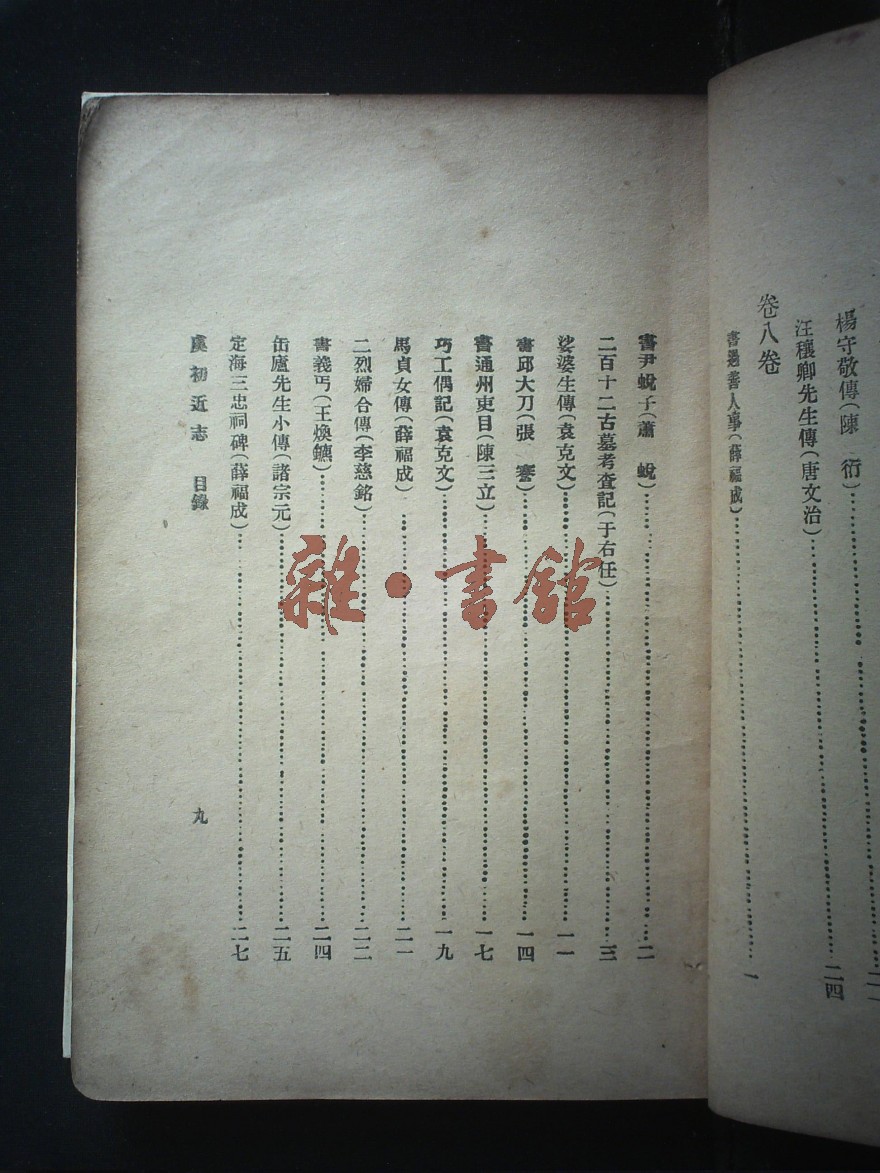 楊守敬傳(陳 衍)
汪穰卿先生傳(唐文治)………二四
卷八卷
書過善人事(薛福成)………一
書尹蛻子(蕭 蛻)………二
二百十二古墓考査記(于右任)………三
娑婆生傳(袁克文)………一一
書邱大刀(張 謇)………一四
書通州吏目(陳三立)………一七
巧工偶記(袁克文)………一九
馬貞女傳(薛福成)………二一
二烈婦合傳(李慈銘)………二二
書義丐(王煥鑣)………二四
缶廬先生小傳(諸宗元)………二五
定海三忠祠碑(薛福成)………二七
虞初近志 目錄 九
雜·書館